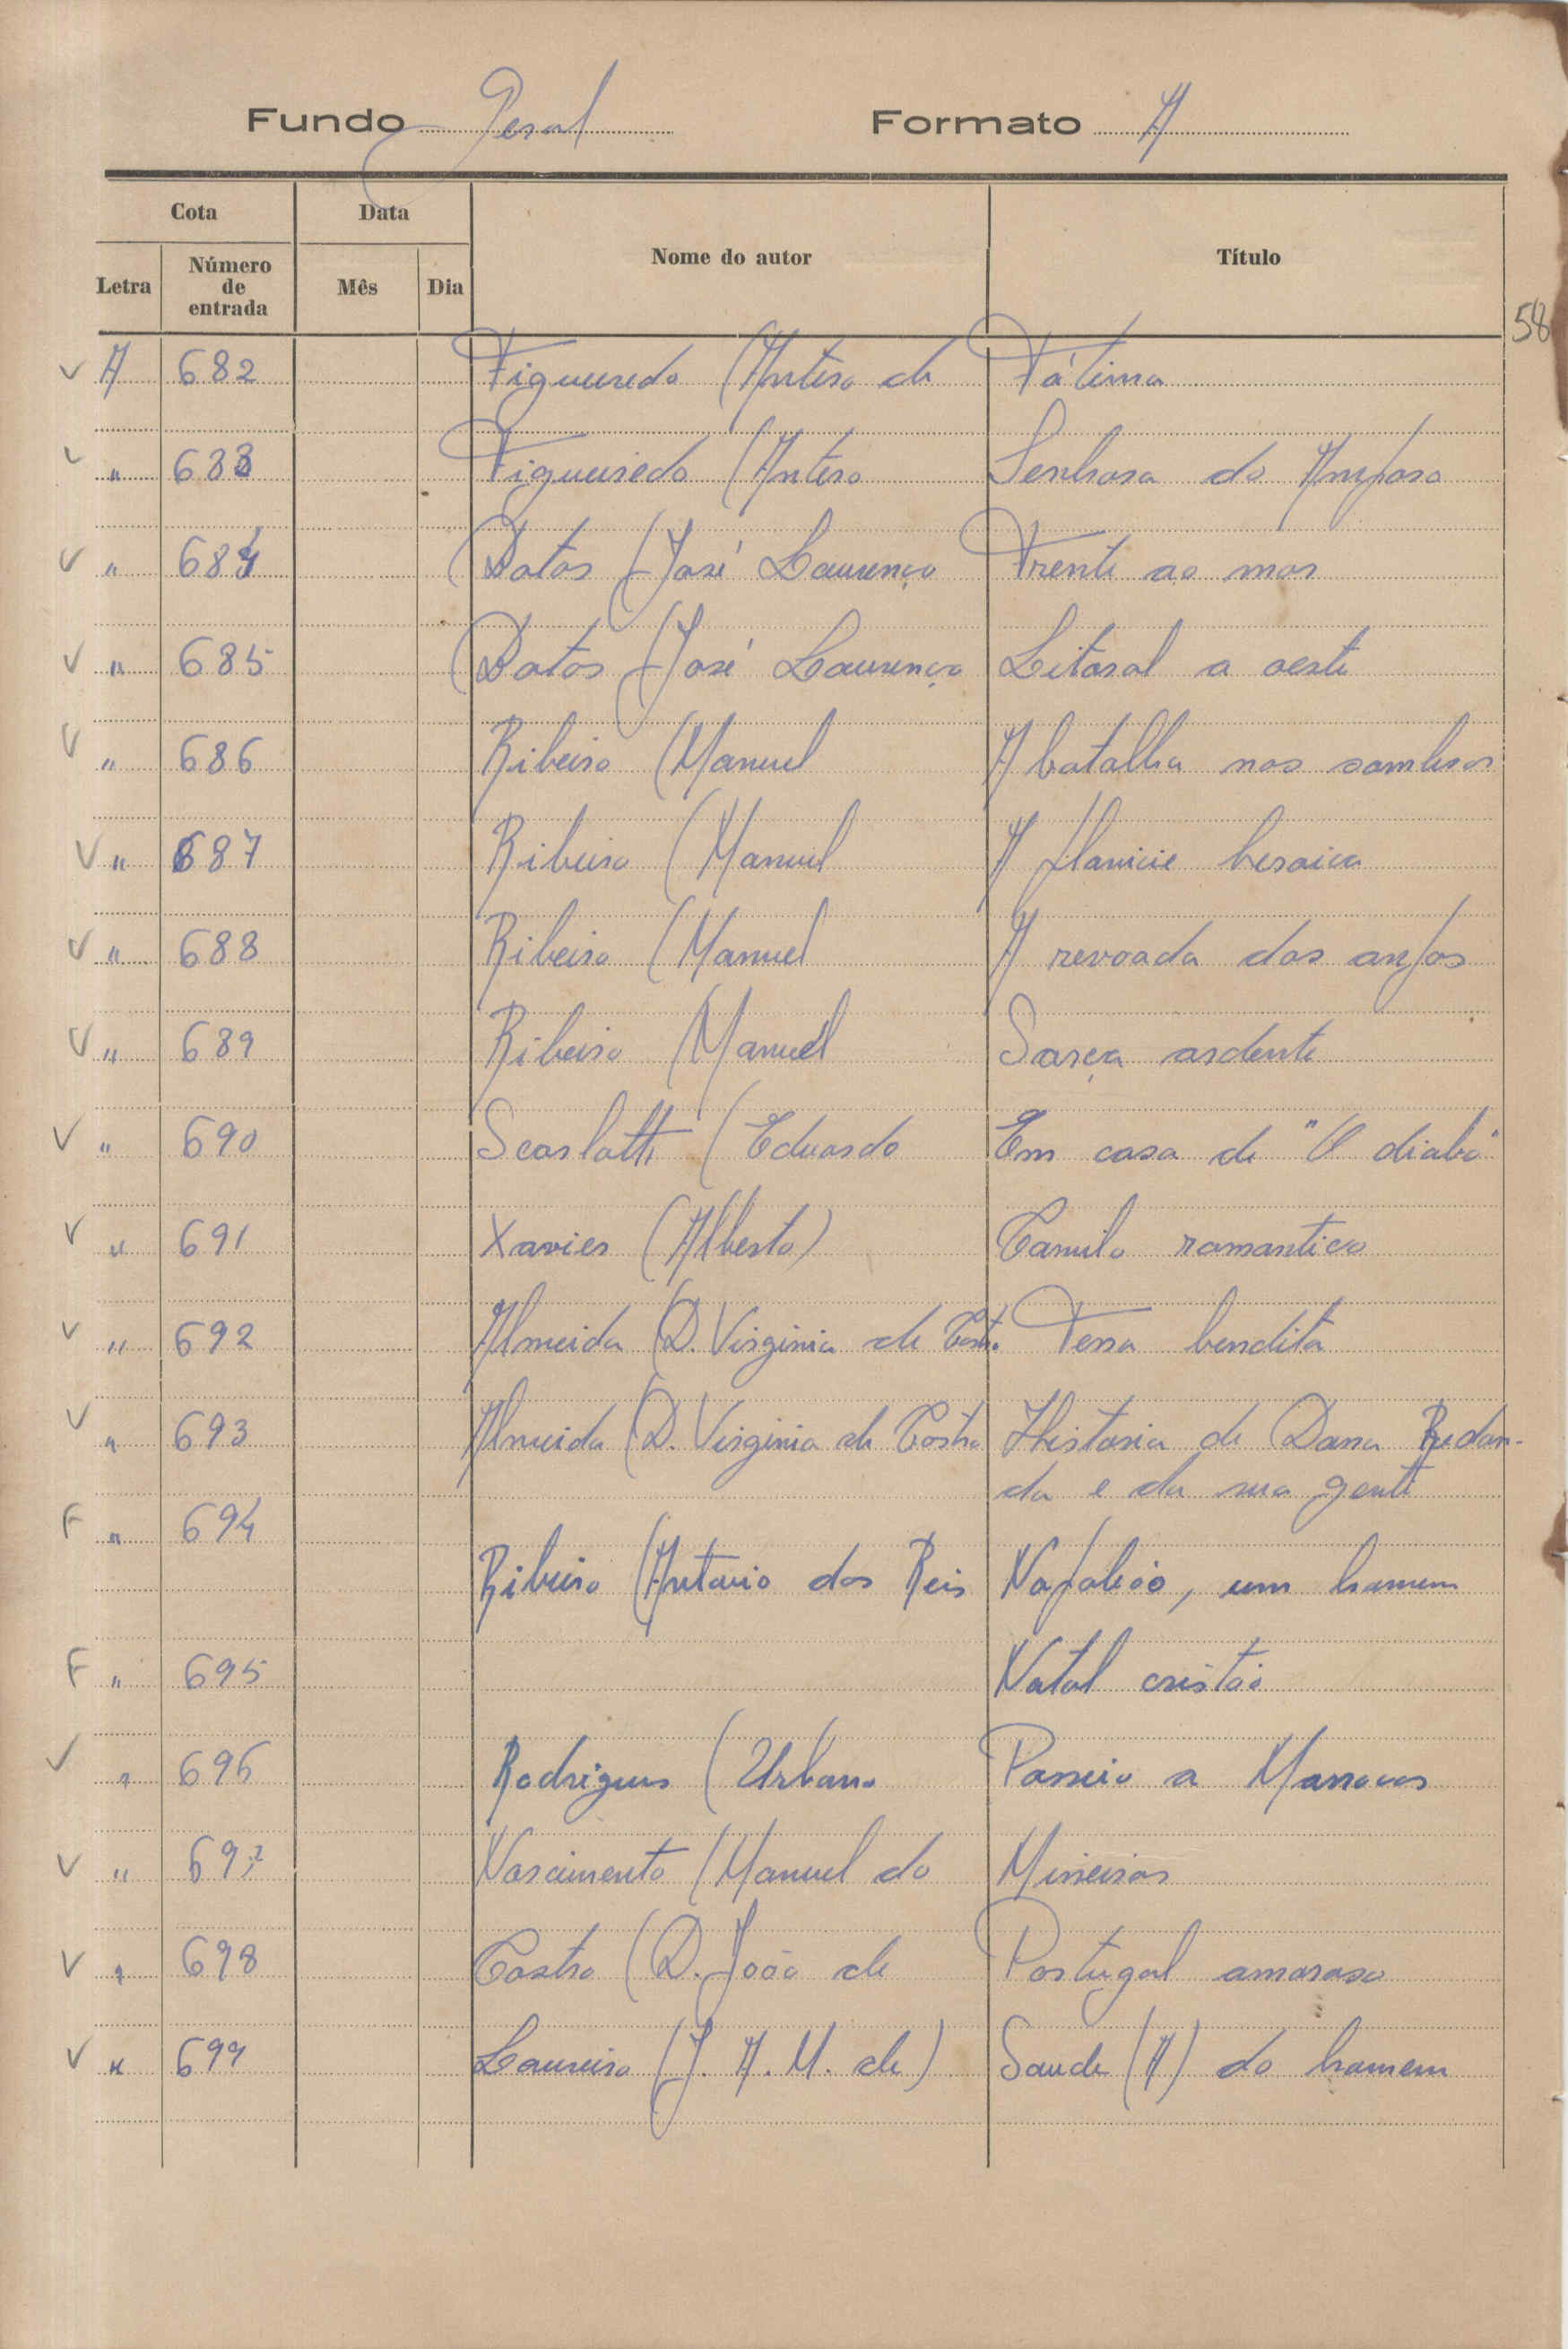 Fundo Geral Formato A
Cota Data Nome do autor Título
Letra Número de entrada Mês Dia
58
V A 682 Figueiredo (Antero de Fátima
V " 683 Figueiredo (Antero Senhora do Amparo
V " 684 Botas (José Lourenço Frente ao mar
V " 685 Botas (José Lourenço Litoral a oeste
V " 686 Ribeiro (Manuel A batalha nas sombras
V " 687 Ribeiro (Manuel A planicie heroica
V " 688 Ribeiro (Manuel A revoada dos anjos
V " 689 Ribeiro (Manuel Sarça ardente
V " 690 Scarlatti (Eduardo Em casa de "O diabo"
V " 691 Xavier (Alberto) Camilo romantico
V " 692 Almeida (D. Virginia de Cast. Terra bendita
V " 693 Almeida (D. Virginia de Castro Historia de Dona Redon-
da e da sua gente
F " 694
Ribeiro (Antonio dos Reis Napoleão, um homem
F " 695 Natal cristão
V " 696 Rodrigues (Urbano Passeio a Marrocos
V " 697 Nascimento (Manuel do Mineiros
V " 698 Castro (D. João de Portugal amoroso
V " 699 Loureiro (J. A. M. de) Saude (A) do homem